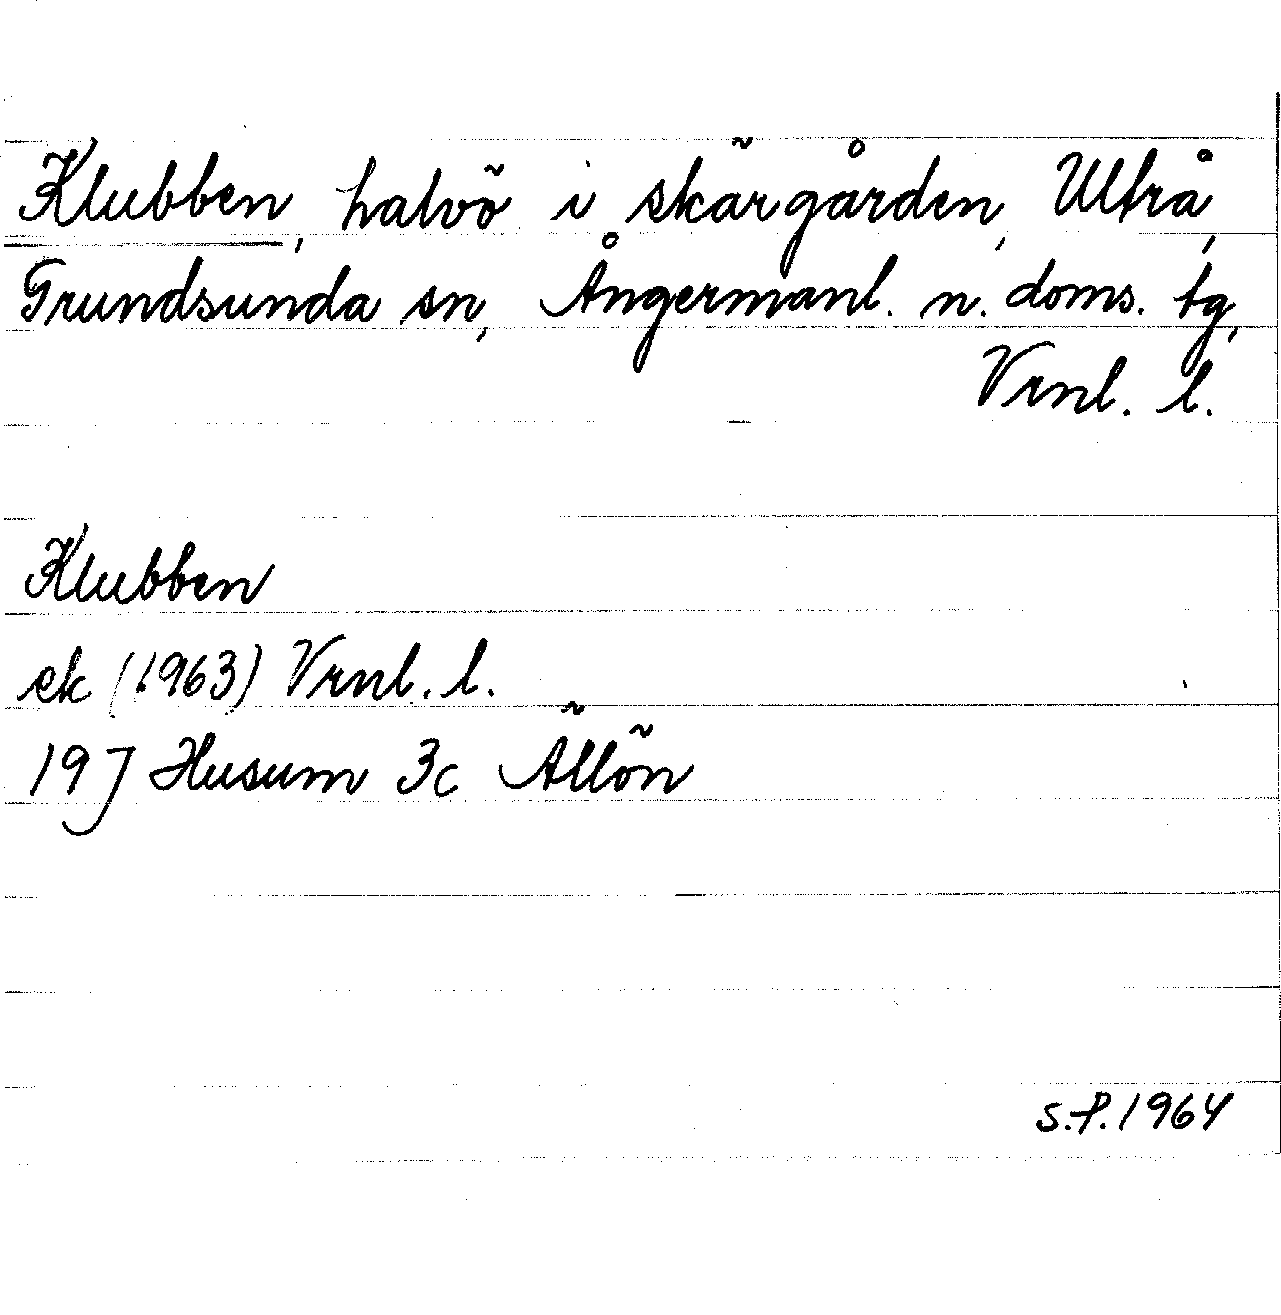 Klubben, halvö i skärgården, Ultrå,
Grundsunda sn, Ångermanl. n. doms. tg,
Vrnl. l.
Klubben
ek (1963) Vrnl. l.
19 J Husum 3c Ällön
S.P. 1964